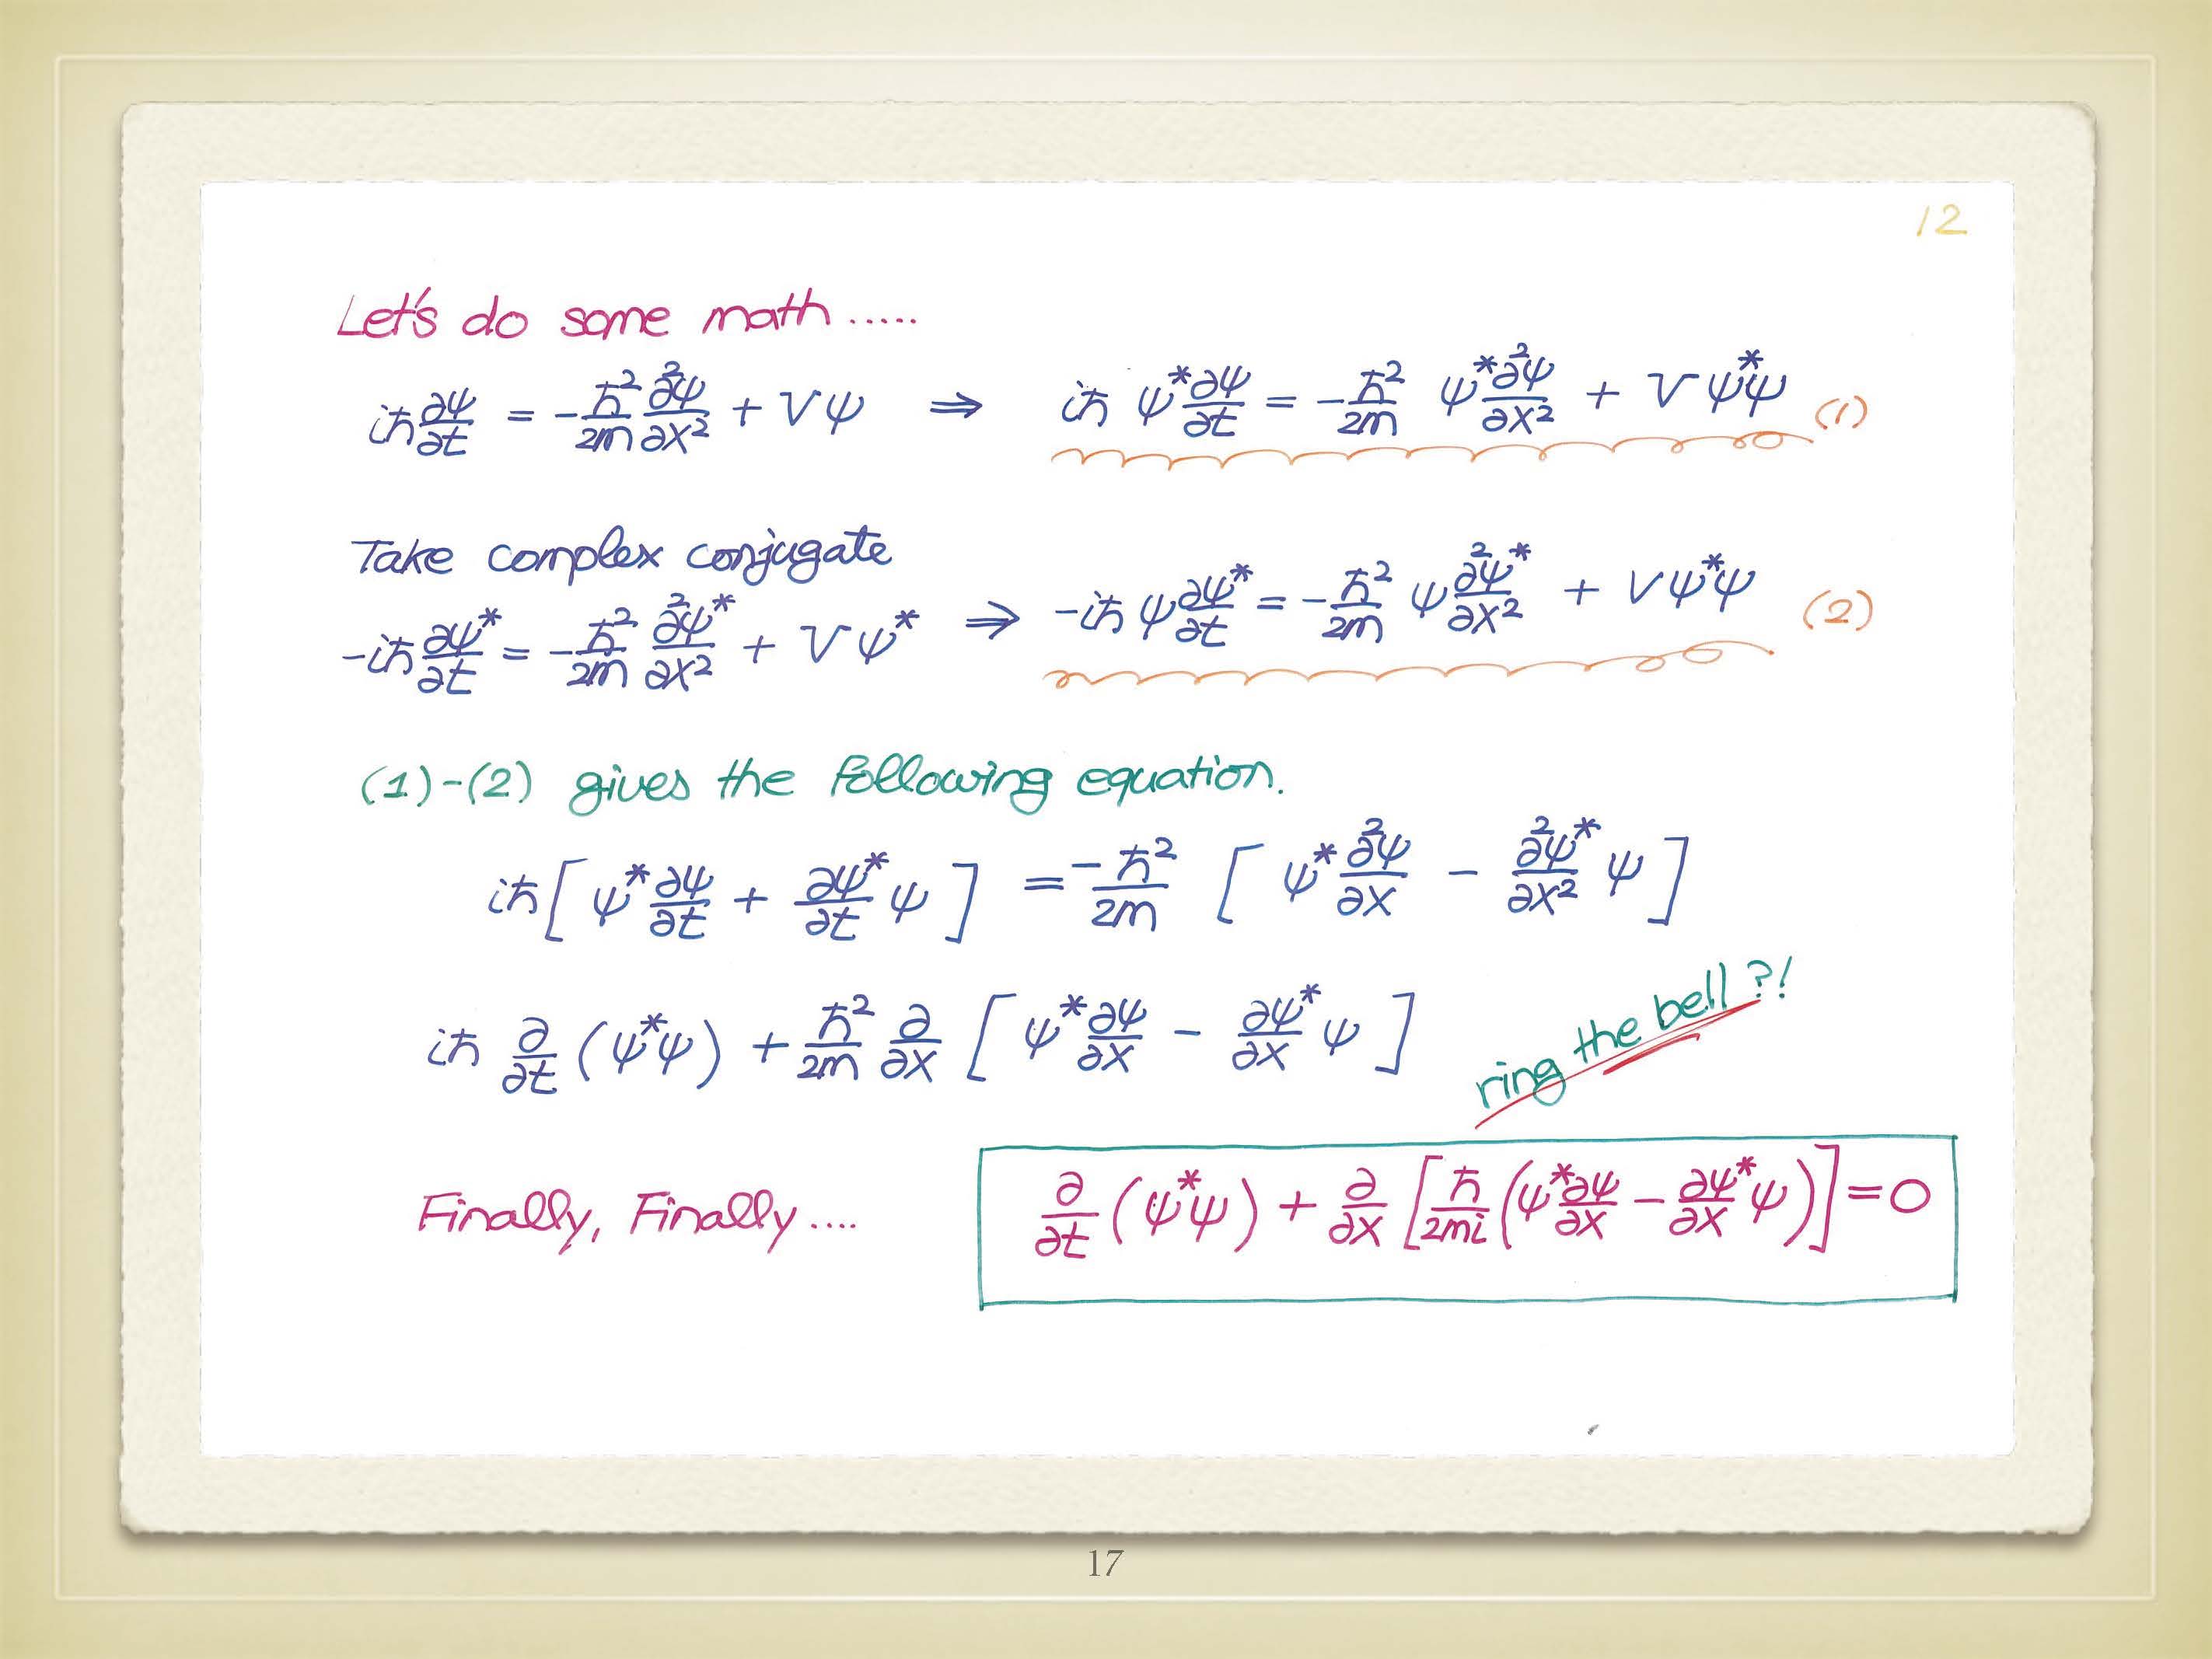 12
Let's do some math .....
iℏ ∂ψ/∂t = -ℏ²/2m ∂²ψ/∂x² + Vψ ⇒ iℏ ψ* ∂ψ/∂t = -ℏ²/2m ψ* ∂²ψ/∂x² + Vψ*ψ (1)
Take complex conjugate
-iℏ ∂ψ*/∂t = -ℏ²/2m ∂²ψ*/∂x² + Vψ* ⇒ -iℏ ψ ∂ψ*/∂t = -ℏ²/2m ψ ∂²ψ*/∂x² + Vψ*ψ (2)
(1)-(2) gives the following equation.
iℏ [ ψ* ∂ψ/∂t + ∂ψ*/∂t ψ ] = -ℏ²/2m [ ψ* ∂²ψ/∂x - ∂²ψ*/∂x² ψ ]
iℏ ∂/∂t (ψ*ψ) + ℏ²/2m ∂/∂x [ ψ* ∂ψ/∂x - ∂ψ*/∂x ψ ]
ring the bell ?!
Finally, Finally .... ∂/∂t (ψ*ψ) + ∂/∂x [ ℏ/2mi ( ψ* ∂ψ/∂x - ∂ψ*/∂x ψ ) ] = 0
17